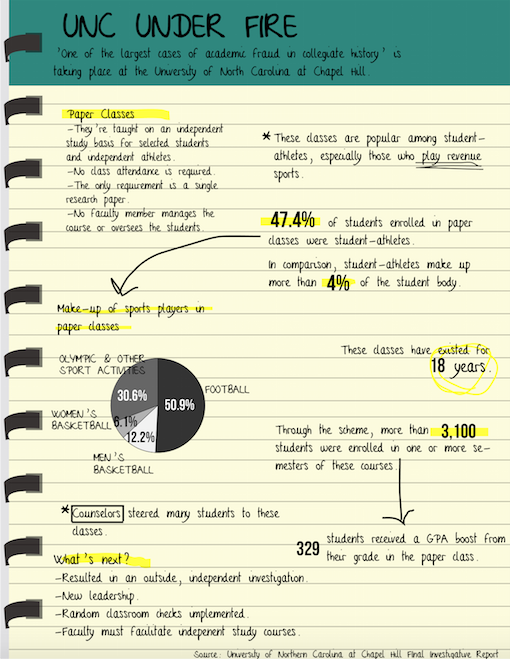 UNC UNDER FIRE
'One of the largest cases of academic fraud in collegiate history' is
taking place at the University of North Carolina at Chapel Hill.
Paper Classes
-They're taught on an independent
study basis for selected students
and independent athletes.
-No class attendance is required.
-The only requirement is a single
research paper.
-No faculty member manages the
course or oversees the students.
* These classes are popular among student-
athletes, especially those who play revenue
sports.
47.4% of students enrolled in paper
classes were student-athletes.
In comparison, student-athletes make up
more than 4% of the student body.
Make-up of sports players in
paper classes
OLYMPIC & OTHER
SPORT ACTIVITIES
30.6%
FOOTBALL
50.9%
WOMEN'S
BASKETBALL
6.1%
12.2%
MEN'S
BASKETBALL
These classes have existed for
18 years.
Through the scheme, more than 3,100
students were enrolled in one or more se-
mesters of these courses.
329 students received a GPA boost from
their grade in the paper class.
* Counselors steered many students to these
classes.
What's next?
-Resulted in an outside, independent investigation.
-New leadership.
-Random classroom checks implemented.
-Faculty must facilitate indepenent study courses.
Source: University of Northern Carolina at Chapel Hill Final Investigative Report